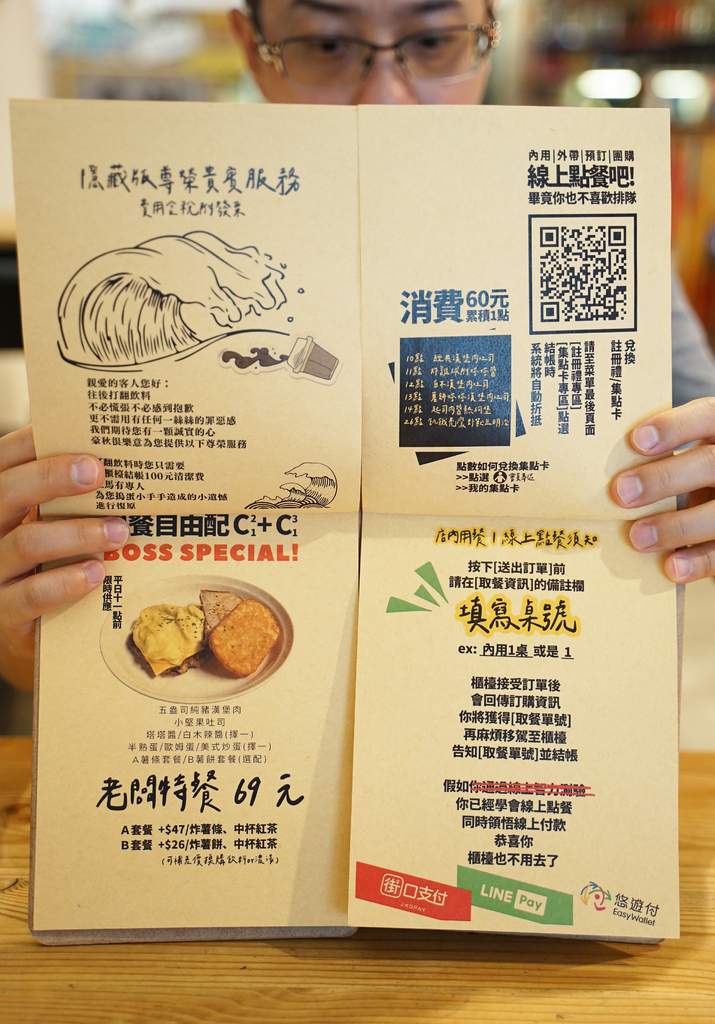 隱藏版尊榮貴賓服務
費用含稅附發票
親愛的客人您好：
往後打翻飲料
不必慌張不必感到抱歉
更不需用有任何一絲絲的罪惡感
我們期待您有一顆誠實的心
豪秋很樂意為您提供以下尊榮服務
翻飲料時您只需要
櫃檯結帳100元清潔費
馬有專人
為您搗蛋小手手造成的小遺憾
進行復原
餐自由配 C²₁+ C³₁
BOSS SPECIAL!
平日十一點前
限時供應
五盎司純豬漢堡肉
小堅果吐司
塔塔醬/白木辣醬(擇一)
半熟蛋/歐姆蛋/美式炒蛋(擇一)
A薯條套餐/B薯餅套餐(選配)
老闆特餐 69 元
A套餐 +$47/炸薯條、中杯紅茶
B套餐 +$26/炸薯餅、中杯紅茶
(可補差價換購飲料or濃湯)
內用|外帶|預訂|團購
線上點餐吧!
畢竟你也不喜歡排隊
消費60元
累積1點
10點 經典漢堡肉吐司
12點 白木漢堡肉吐司
兌換
註冊禮/集點卡
請至菜單最後頁面
[註冊禮專區]
[集點卡專區]點選
結帳時
系統將自動折抵
點數如何兌換集點卡
>>點選 會員專區
>>我的集點卡
店內用餐 | 線上點餐須知
按下[送出訂單]前
請在[取餐資訊]的備註欄
填寫桌號
ex: 內用1桌 或是 1
櫃檯接受訂單後
會回傳訂購資訊
你將獲得[取餐單號]
再麻煩移駕至櫃檯
告知[取餐單號]並結帳
假如你通過線上智力測驗
你已經學會線上點餐
同時領悟線上付款
恭喜你
櫃檯也不用去了
街口支付
JKOPAY
LINE Pay
悠遊付
EasyWallet